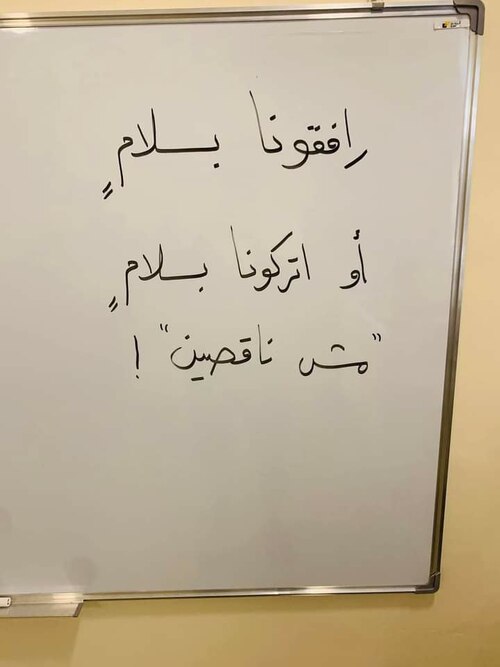 رافقونا بسلامٍ
أو اتركونا بسلامٍ
"مش ناقصين" !